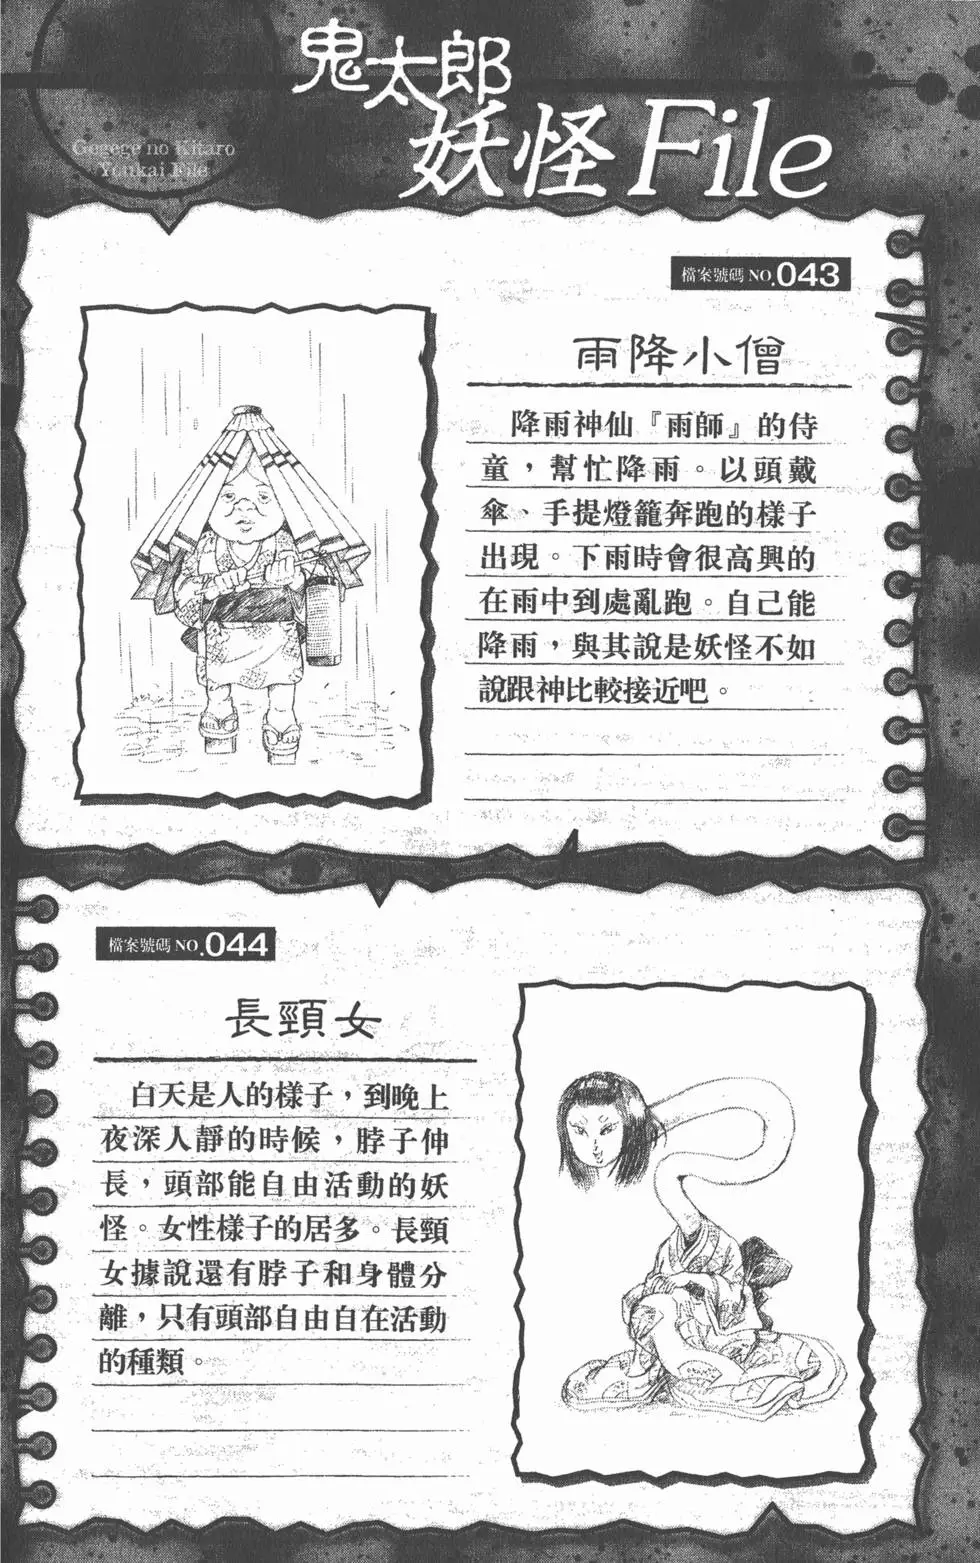 鬼太郎
妖怪File
Gegege no Kitaro
Youkai File
檔案號碼 NO.043
雨降小僧
降雨神仙『雨師』的侍
童，幫忙降雨。以頭戴
傘、手提燈籠奔跑的樣子
出現。下雨時會很高興的
在雨中到處亂跑。自己能
降雨，與其說是妖怪不如
說跟神比較接近吧。
檔案號碼 NO.044
長頸女
白天是人的樣子，到晚上
夜深人靜的時候，脖子伸
長，頭部能自由活動的妖
怪。女性樣子的居多。長頸
女據說還有脖子和身體分
離，只有頭部自由自在活動
的種類。